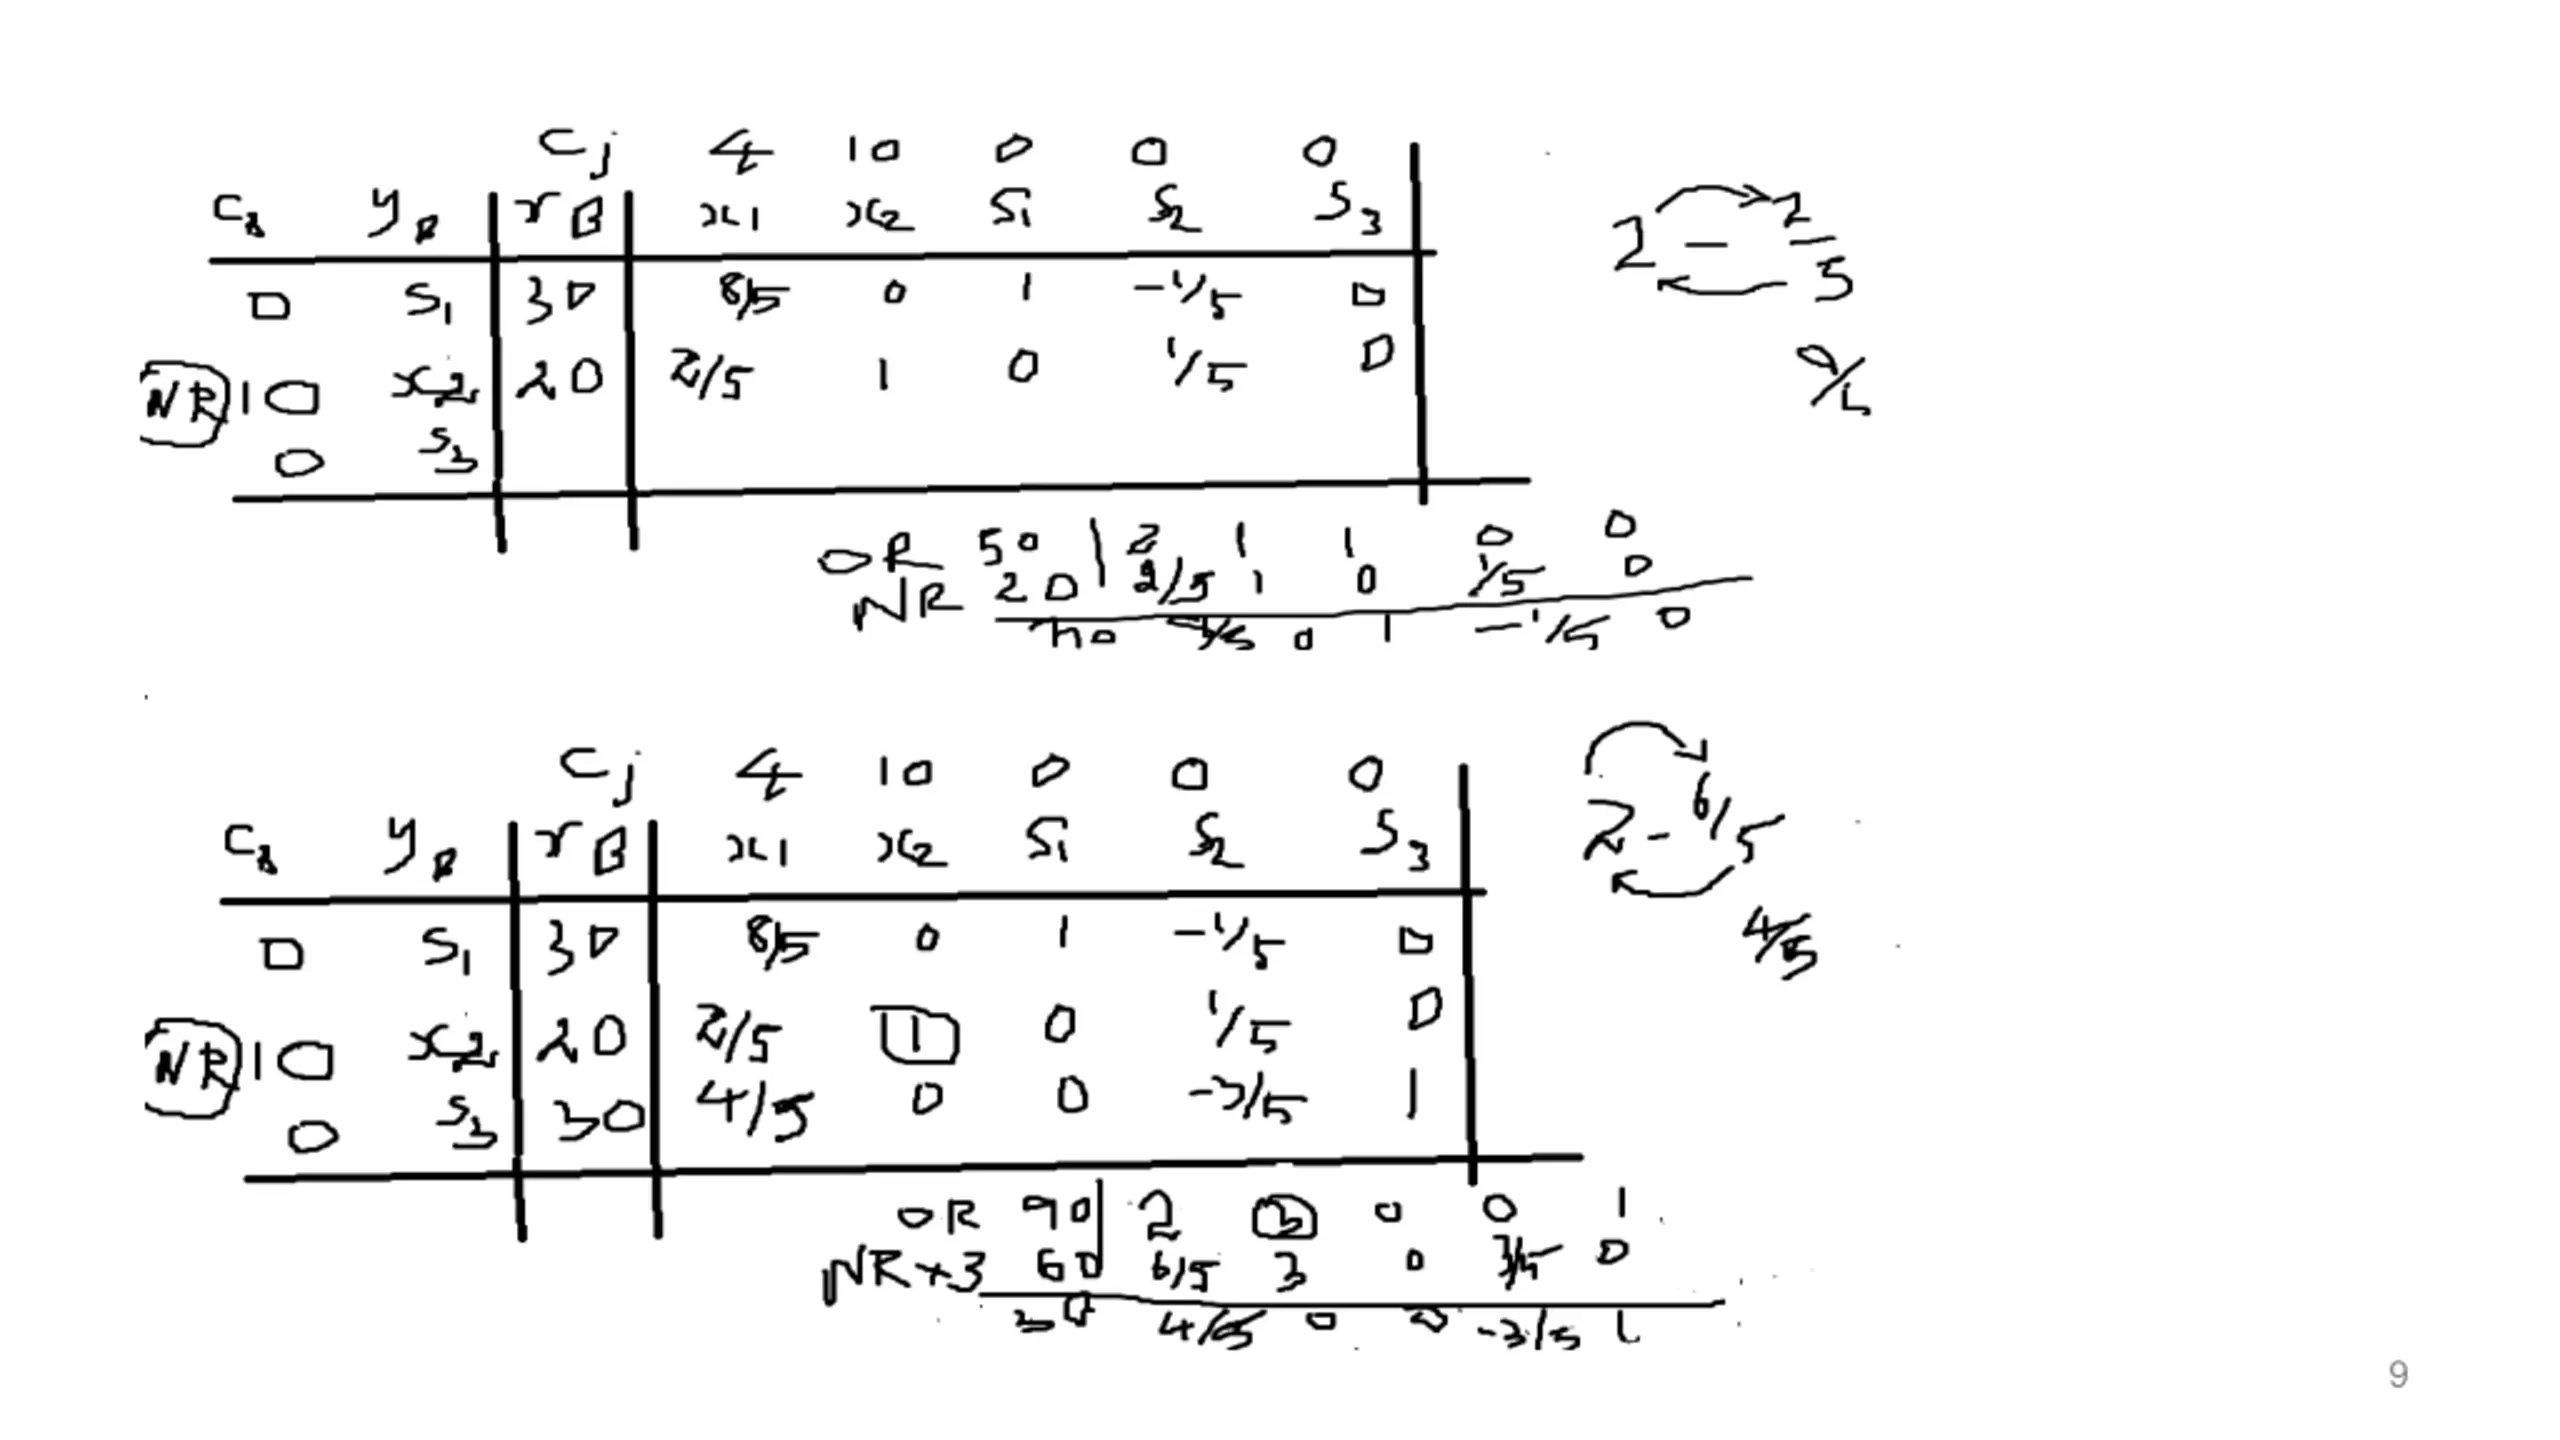 Cj 4 10 0 0 0
CB yB xB x1 x2 S1 S2 S3
0 S1 30 8/5 0 1 -1/5 0
NR 10 x2 20 2/5 1 0 1/5 0
0 S3
2 - 2/5
OR 50 2 1 1 0 0
NR 20 2/5 1 0 1/5 0
0 1 -1/5 0
Cj 4 10 0 0 0
CB yB xB x1 x2 S1 S2 S3
0 S1 30 8/5 0 1 -1/5 0
NR 10 x2 20 2/5 1 0 1/5 0
0 S3 30 4/5 0 0 -3/5 1
2 - 6/5
4/5
OR 90 2 3 0 0 1
NR×3 60 6/5 3 0 3/5 0
30 4/5 0 0 -3/5 1
9